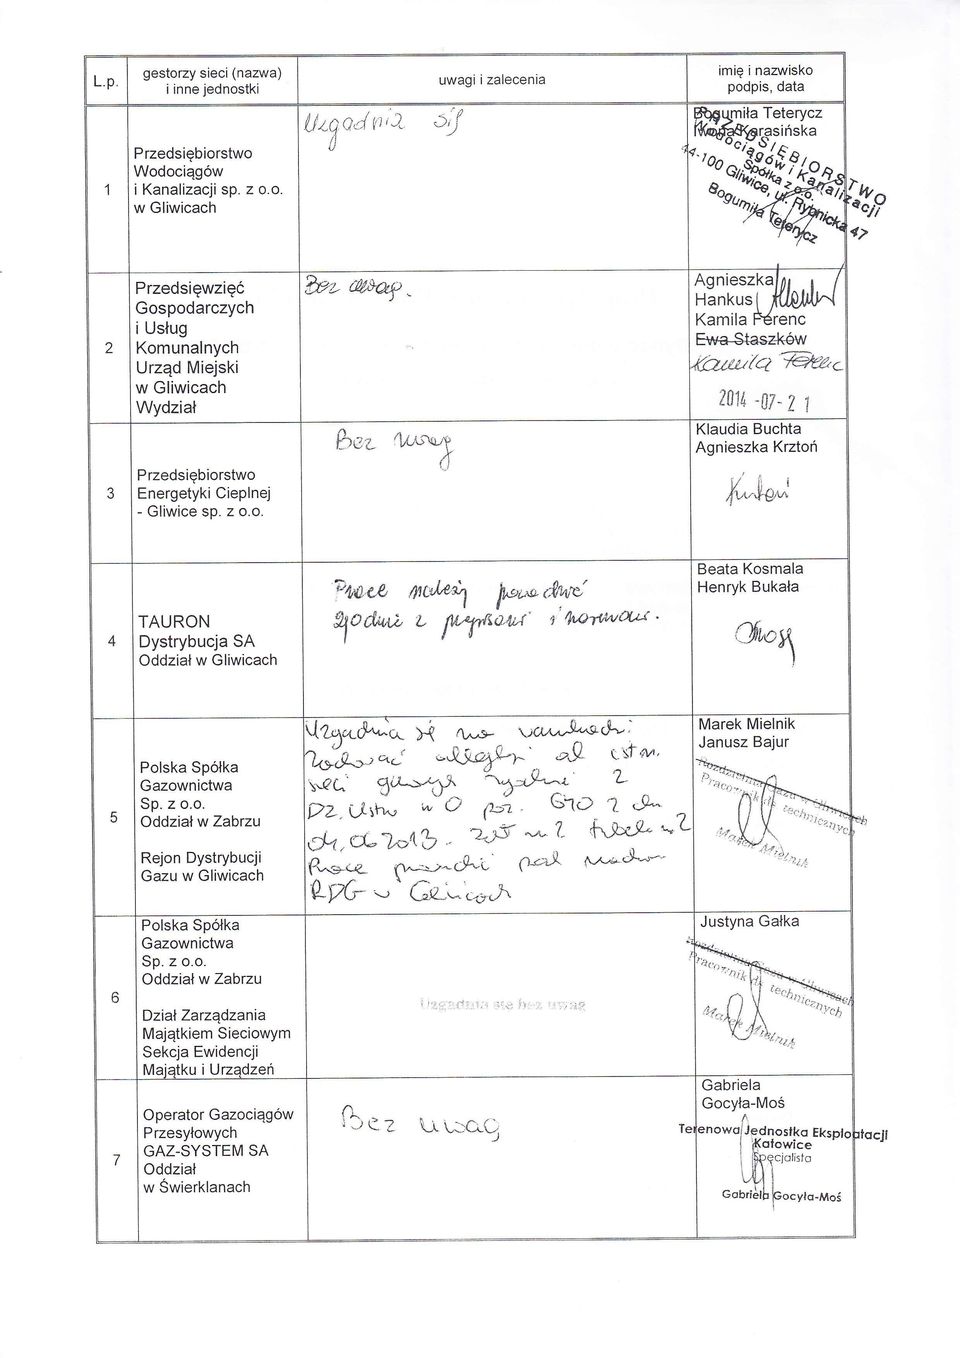 L.p.
gestorzy sieci (nazwa)
i inne jednostki
uwagi i zalecenia
imię i nazwisko
podpis, data
1
Przedsiębiorstwo
Wodociągów
i Kanalizacji sp. z o.o.
w Gliwicach
Uzgadnia się
Bogumiła Teterycz
Iwona Karasińska
Wodociągów i Kanalizacji
Spółka z o.o.
44-100 Gliwice, ul. Rybnicka 47
Bogumiła Teterycz
2
Przedsięwzięć
Gospodarczych
i Usług
Komunalnych
Urząd Miejski
w Gliwicach
Wydział
Bez uwag.
Agnieszka
Hankus
Kamila Ferenc
Ewa Staszków
Kamila Ferenc
2014 -07- 21
3
Przedsiębiorstwo
Energetyki Cieplnej
- Gliwice sp. z o.o.
Bez uwag
Klaudia Buchta
Agnieszka Krztoń
Krztoń
4
TAURON
Dystrybucja SA
Oddział w Gliwicach
Prace należy prowadzić
zgodnie z przepisami i normami.
Beata Kosmala
Henryk Bukała
5
Polska Spółka
Gazownictwa
Sp. z o.o.
Oddział w Zabrzu
Rejon Dystrybucji
Gazu w Gliwicach
Uzgadnia się na warunkach:
Zachować odległ. od istn.
sieci z
Dz. Ustaw poz. 640 z dn.
04.06.2013. Zał nr 2 tabela nr 2
Prace prowadzić pod nadzor
RDG w Gliwicach
Marek Mielnik
Janusz Bajur
Pracownik ds. technicznych
Marek Mielnik
6
Polska Spółka
Gazownictwa
Sp. z o.o.
Oddział w Zabrzu
Dział Zarządzania
Majątkiem Sieciowym
Sekcja Ewidencji
Majątku i Urządzeń
Uzgadnia się bez uwag
Justyna Gałka
Pracownik ds. technicznych
Marek Mielnik
7
Operator Gazociągów
Przesyłowych
GAZ-SYSTEM SA
Oddział
w Świerklanach
Bez uwag
Gabriela
Gocyła-Moś
Terenowa Jednostka Eksploatacji
Katowice
Specjalista
Gabriela Gocyła-Moś